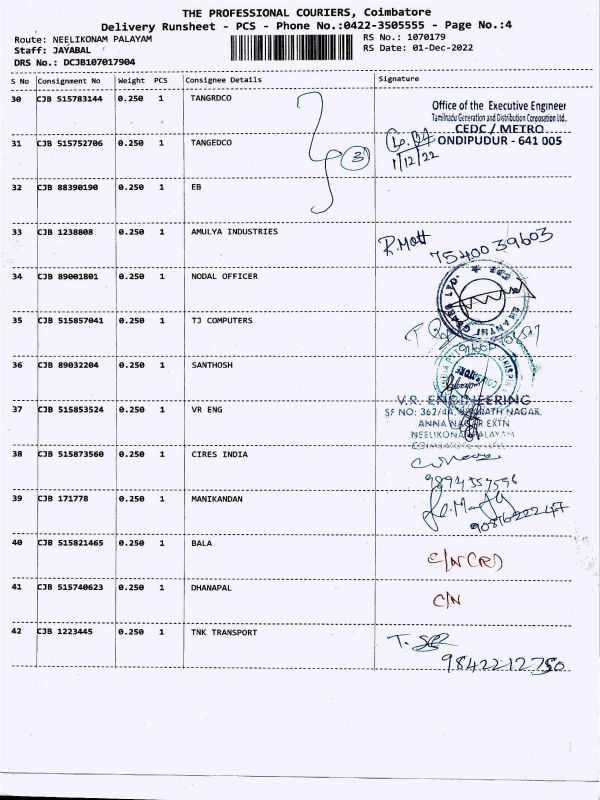 THE PROFESSIONAL COURIERS, Coimbatore
Delivery Runsheet - PCS - Phone No.:0422-3505555 - Page No.:4
Route: NEELIKONAM PALAYAM
RS No.: 1070179
Staff: JAYABAL
RS Date: 01-Dec-2022
DRS No.: DCJB107017904
S No Consignment No Weight PCS Consignee Details Signature
30 CJB 515783144 0.250 1 TANGRDCO
Office of the Executive Engineer
Tamilnadu Generation and Distribution Corporation Ltd.,
CEDC / METRO
31 CJB 515752706 0.250 1 TANGEDCO
ONDIPUDUR - 641 005
3
1/12/22
32 CJB 88390190 0.250 1 EB
33 CJB 1238808 0.250 1 AMULYA INDUSTRIES
7540039603
34 CJB 89001801 0.250 1 NODAL OFFICER
35 CJB 515857041 0.250 1 TJ COMPUTERS
36 CJB 89032204 0.250 1 SANTHOSH
V.R. ENGINEERING
37 CJB 515853524 0.250 1 VR ENG
SF NO: 362/4A, NAGAR
ANNA NAGAR EXTN
NEELIKONAMPALAYAM
38 CJB 515873560 0.250 1 CIRES INDIA
39 CJB 171778 0.250 1 MANIKANDAN
40 CJB 515821465 0.250 1 BALA
C/N
41 CJB 515740623 0.250 1 DHANAPAL
C/N
42 CJB 1223445 0.250 1 TNK TRANSPORT
9842212750